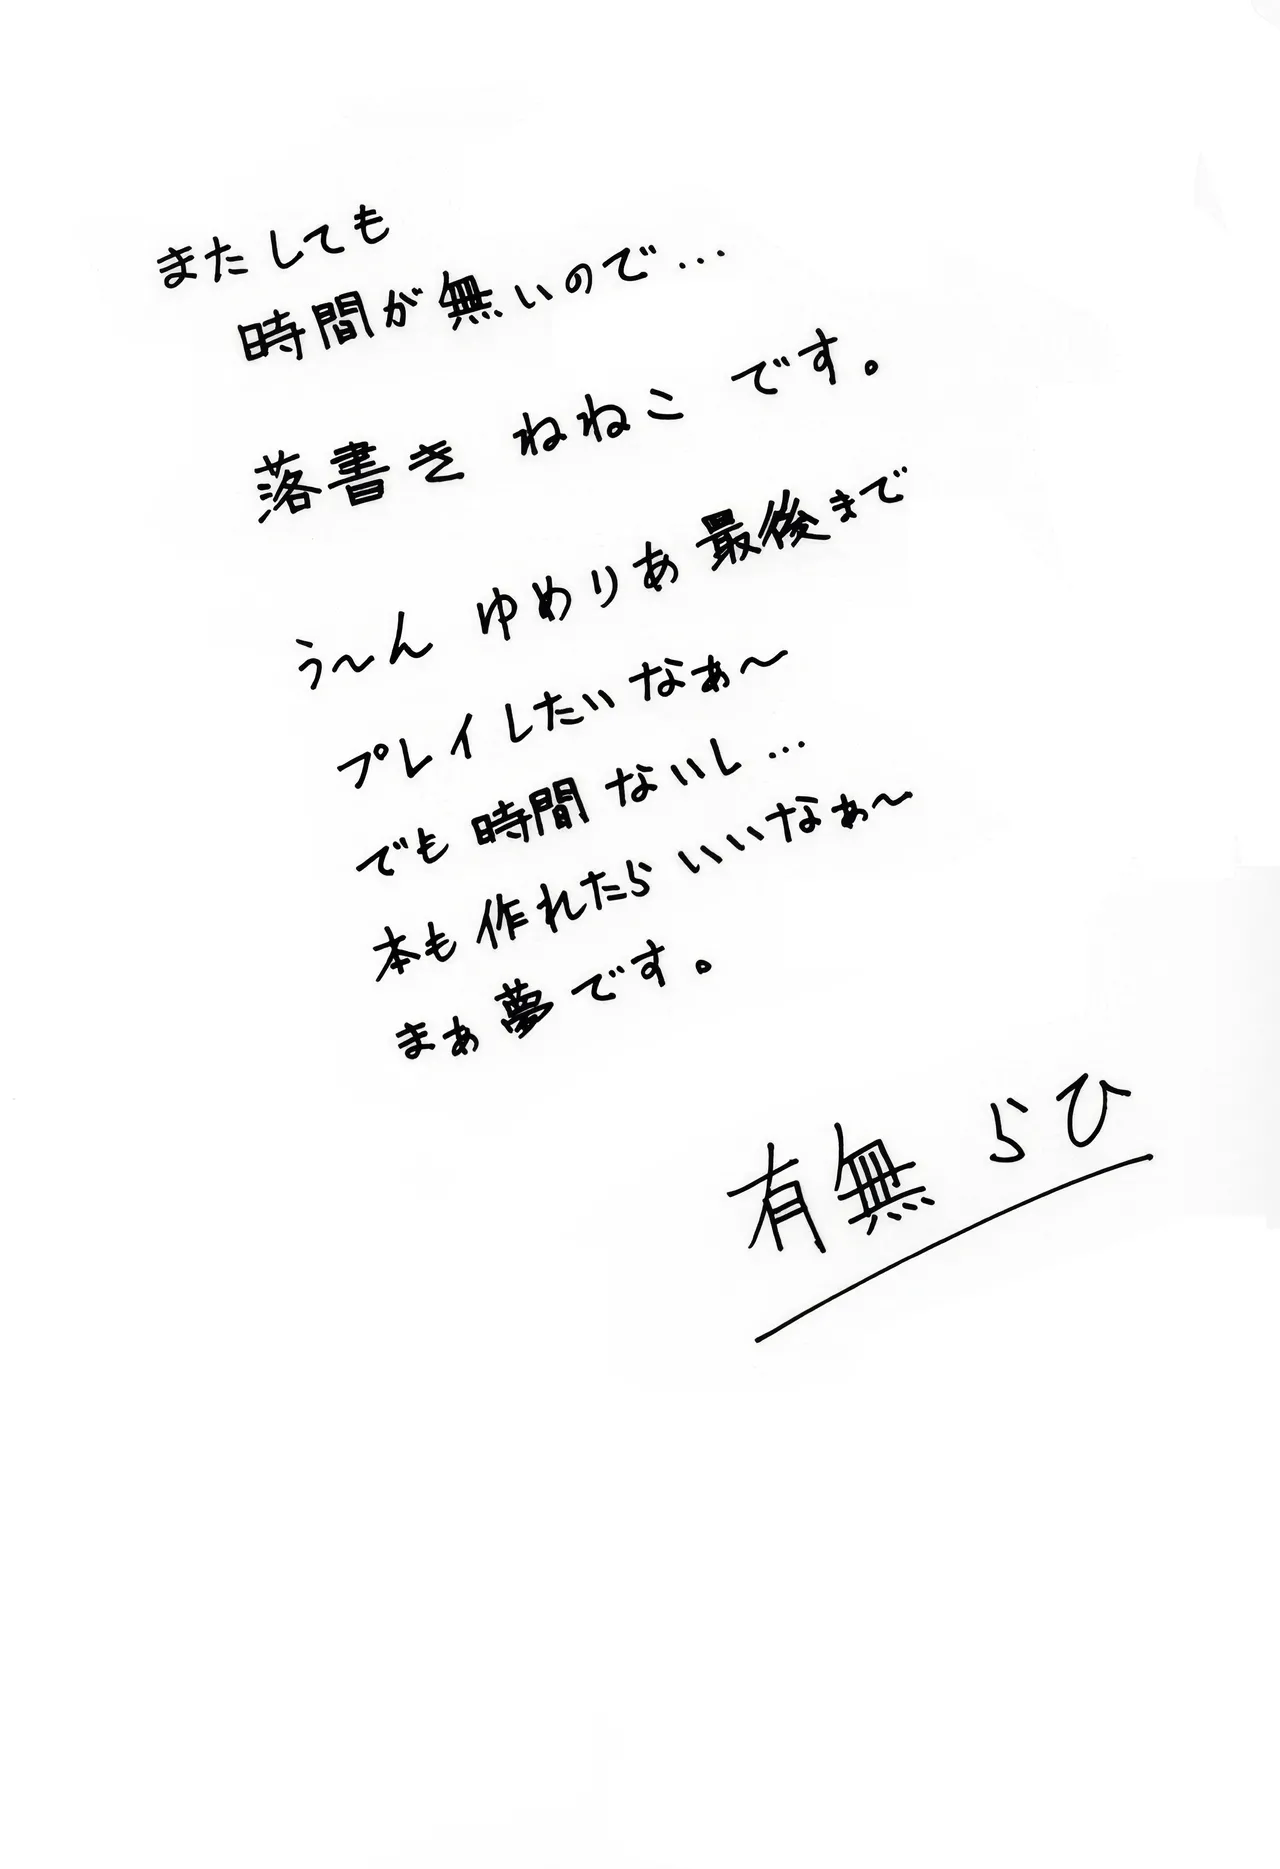 またしても
時間が無いので…
落書き ねねこ です。
う〜ん ゆめりあ 最後まで
プレイしたいなぁ〜
でも 時間 ないし…
本も 作れたら いいなぁ〜
まぁ夢です。
有無 らひ